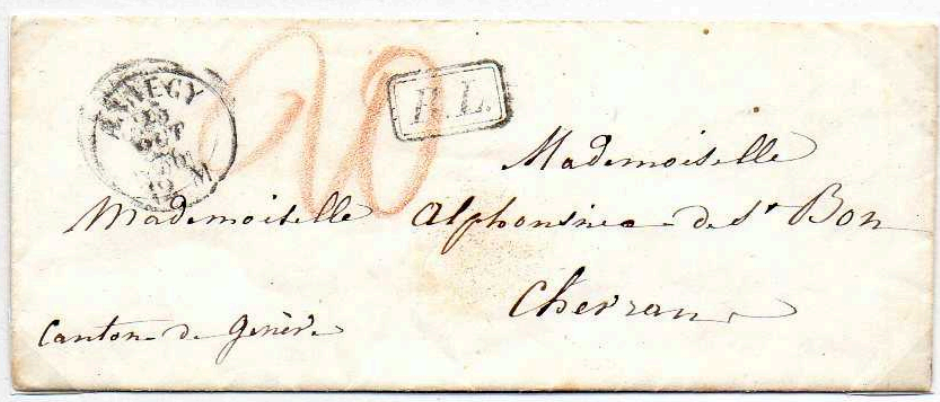 ANNECY
OUT
M
20
R.L.
Mademoiselle
Mademoiselle Alphonsine de St Bon
Canton de Genève